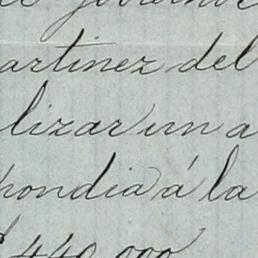 artinez del
lizar un a
pondia á la
440.000